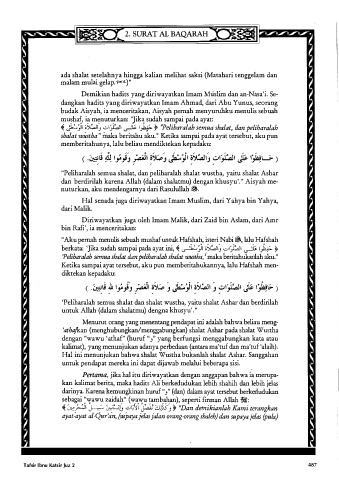 2. SURAT AL BAQARAH
ada shalat setelahnya hingga kalian melihat saksi (Matahari tenggelam dan
malam mulai gelap.)"
Demikian hadits yang diriwayatkan Imam Muslim dan an-Nasa'i. Se-
dangkan hadits yang diriwayatkan Imam Ahmad, dari Abu Yunus, seorang
budak Aisyah, ia menceritakan, Aisyah pernah menyuruhku menulis sebuah
mushaf, ia menuturkan: "Jika sudah sampai pada ayat:
﴾ حَافِظُوا عَلَى الصَّلَوَاتِ وَالصَّلَاةِ الْوُسْطَى ﴿ 'Peliharalah semua shalat, dan peliharalah
shalat wustha' maka beritahu aku." Ketika sampai pada ayat tersebut, aku pun
memberitahunya, lalu beliau mendiktekan kepadaku:
( حَافِظُوا عَلَى الصَّلَوَاتِ وَالصَّلَاةِ الْوُسْطَى وَصَلَاةِ الْعَصْرِ وَقُومُوا لِلَّهِ قَانِتِينَ. )
"Peliharalah semua shalat, dan peliharalah shalat wustha, yaitu shalat Ashar
dan berdirilah karena Allah (dalam shalatmu) dengan khusyu'." Aisyah me-
nuturkan, aku mendengarnya dari Rasulullah ﷺ.
Hal senada juga diriwayatkan Imam Muslim, dari Yahya bin Yahya,
dari Malik.
Diriwayatkan juga oleh Imam Malik, dari Zaid bin Aslam, dari Amr
bin Rafi', ia menceritakan:
"Aku pernah menulis sebuah mushaf untuk Hafshah, isteri Nabi ﷺ, lalu Hafshah
berkata: 'Jika sudah sampai pada ayat ini, ﴾ حَافِظُوا عَلَى الصَّلَوَاتِ وَالصَّلَاةِ الْوُسْطَى ﴿
'Peliharalah semua shalat dan peliharalah shalat wustha,' maka beritahukanlah aku.'
Ketika sampai ayat tersebut, aku pun memberitahukannya, lalu Hafshah men-
diktekan kepadaku:
( حَافِظُوا عَلَى الصَّلَوَاتِ وَ الصَّلَاةِ الْوُسْطَى وَ صَلَاةِ الْعَصْرِ وَقُومُوا لِلَّهِ قَانِتِينَ. )
'Peliharalah semua shalat dan shalat wustha, yaitu shalat Ashar dan berdirilah
untuk Allah (dalam shalatmu) dengna khusyu'."
Menurut orang yang menentang pendapat ini adalah bahwa beliau meng-
'athafkan (menghubungkan/menggabungkan) shalat Ashar pada shalat Wustha
dengan "wawu 'athaf" (huruf "و" yang berfungsi menggabungkan kata atau
kalimat), yang menunjukan adanya perbedaan (antara ma'tuf dan ma'tuf 'alaih).
Hal ini menunjukan bahwa shalat Wustha bukanlah shalat Ashar. Sanggahan
untuk pendapat mereka ini dapat dijawab melalui beberapa sisi.
Pertama, jika hal itu diriwayatkan dengan anggapan bahwa ia merupa-
kan kalimat berita, maka hadits Ali berkedudukan lebih shahih dan lebih jelas
darinya. Karena kemungkinan huruf "و" (dan) dalam ayat tersebut berkedudukan
sebagai "wawu zaidah" (wawu tambahan), seperti firman Allah
﴾ وَكَذَلِكَ نُفَصِّلُ الْآيَاتِ وَلِتَسْتَبِينَ سَبِيلُ الْمُجْرِمِينَ ﴿ "Dan demikianlah Kami terangkan
ayat-ayat al-Qur'an, (supaya jelas jalan orang-orang shaleh) dan supaya jelas (pula)
Tafsir Ibnu Katsir Juz 2
487